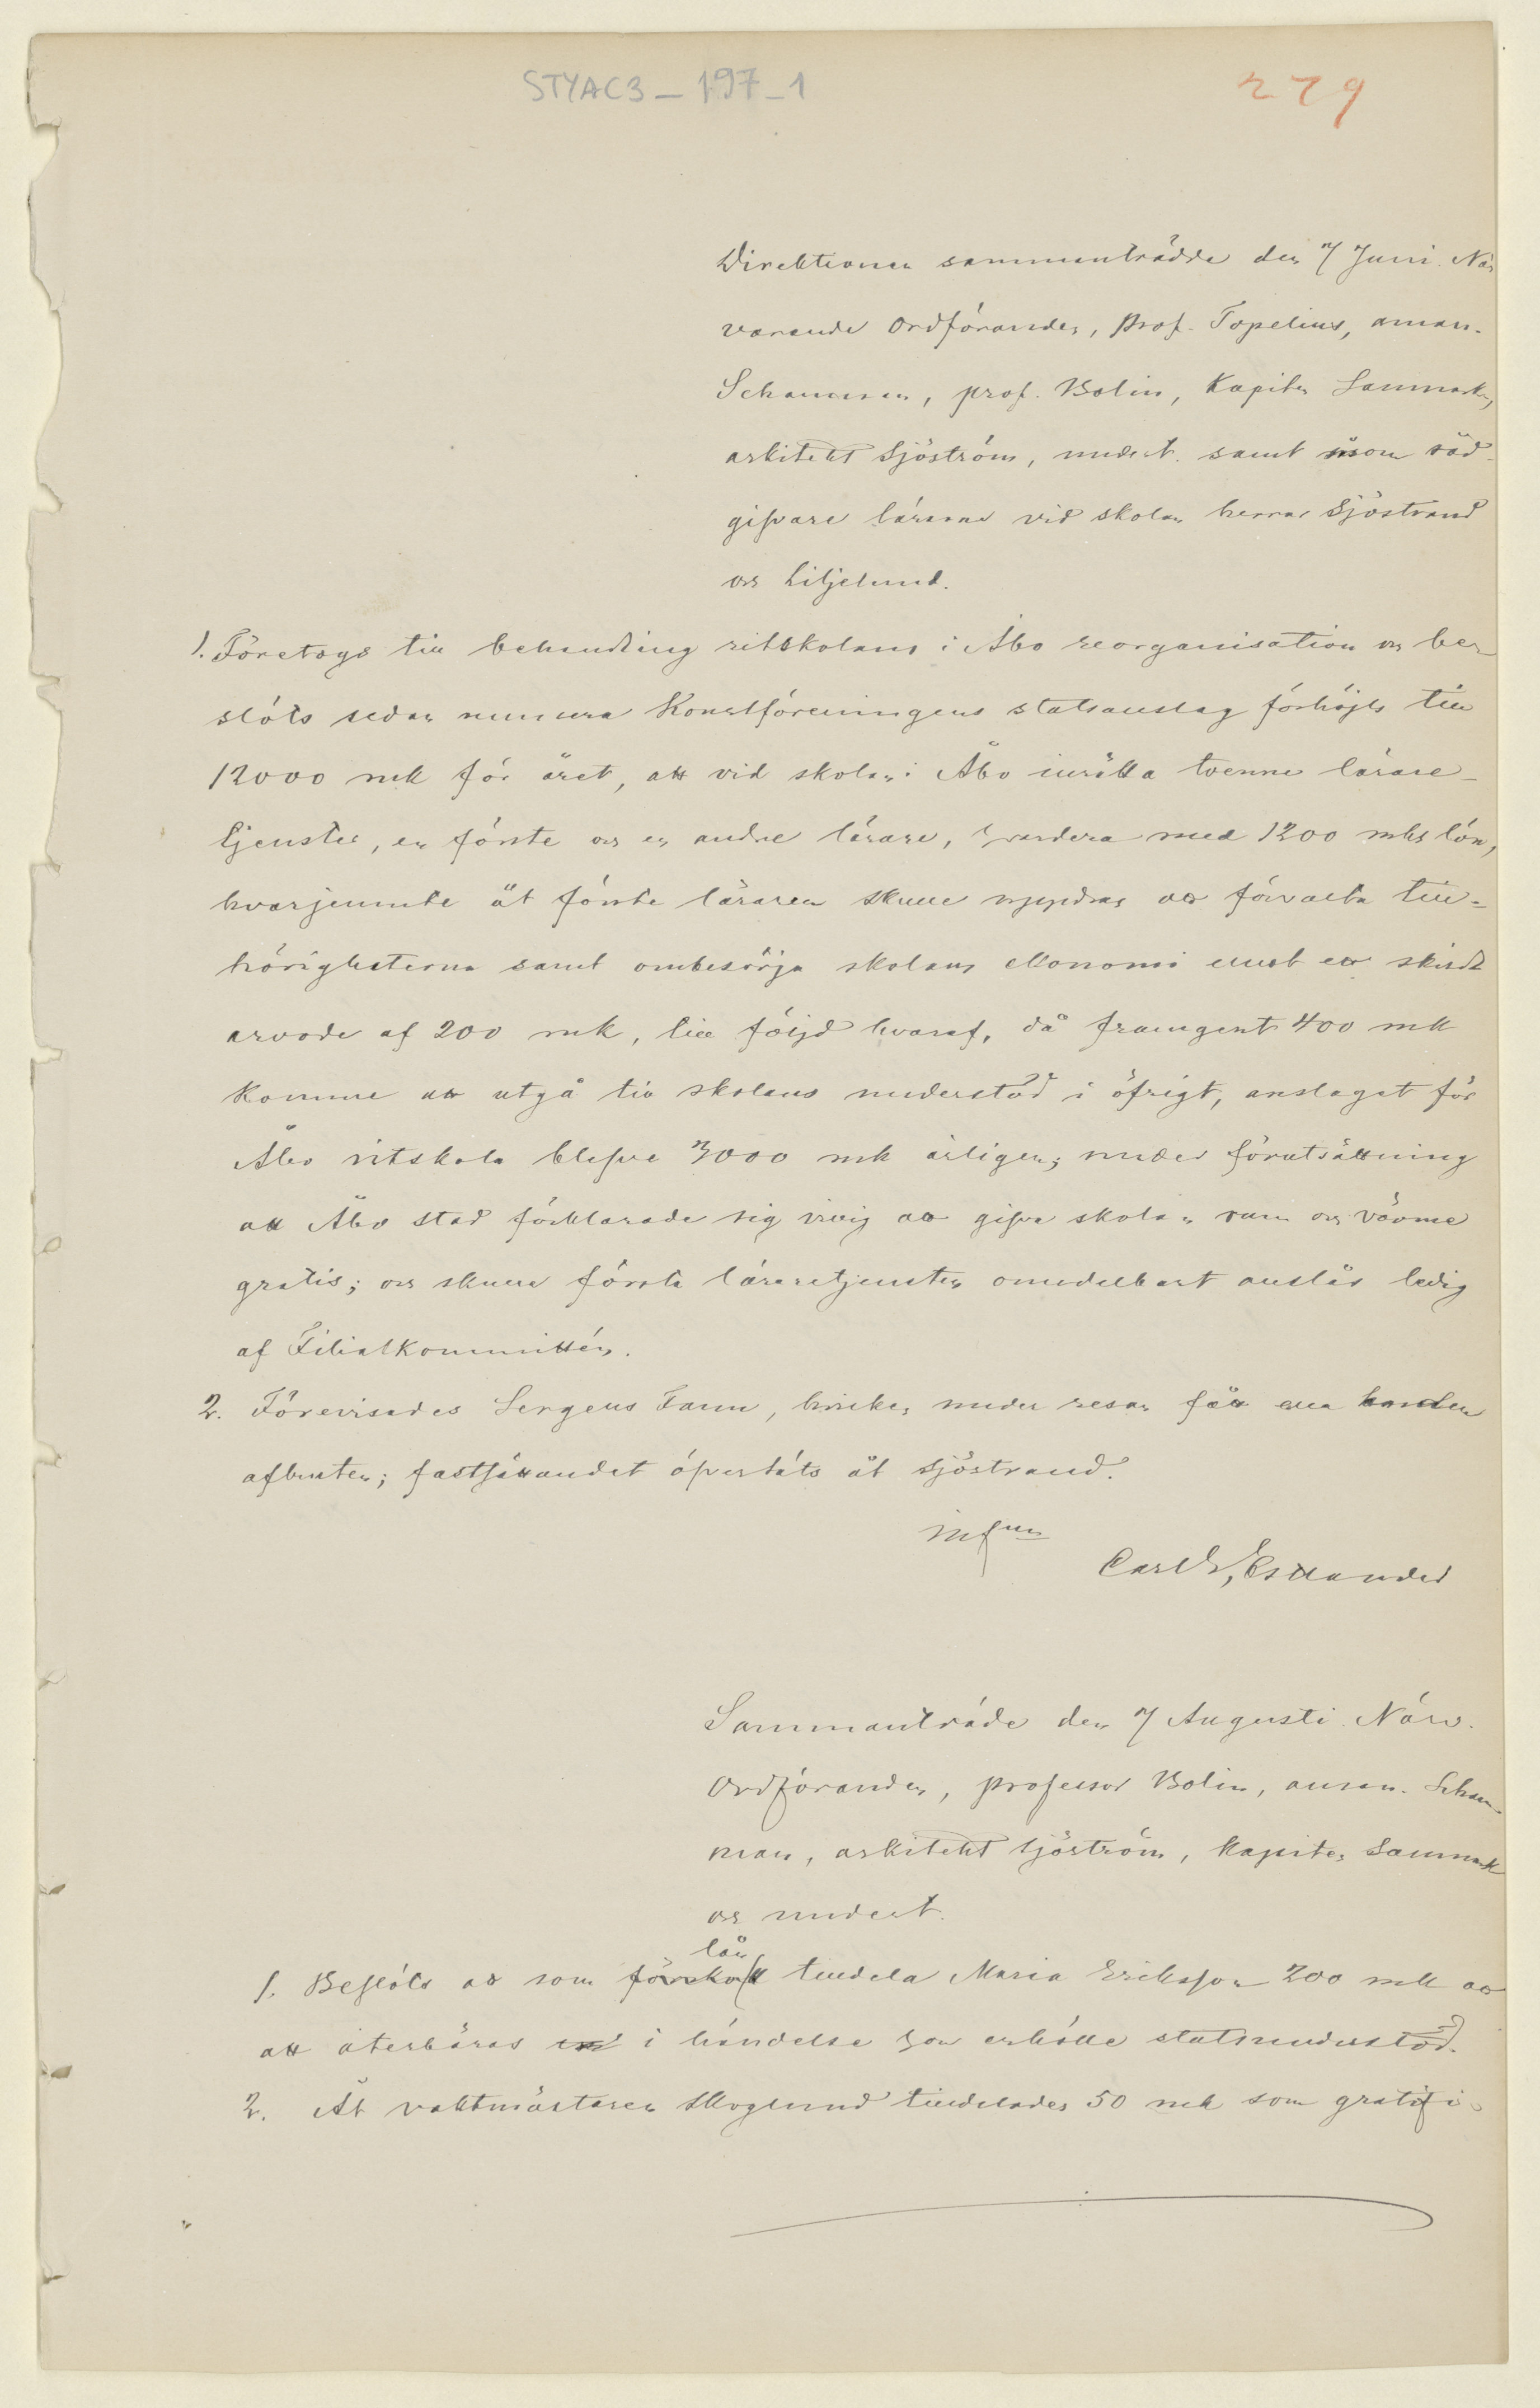 STYAC3_197_1
279
Direktionen sammanträdde den 7 Juni. När
varande Ordföranden, Prof. Topelius, aman.
Schauman, prof. Bolin, Kapiten Lannmark,
arkitekt Sjöström, undert. samt såsom råd-
gifvare lärarne vid skolan herrar Sjöstrand
och Liljelund.
1. Företogs till behandling ritskolans i Åbo reorganisation och be-
slöts sedan numera Konstföreningens statsanslag förhöjts till
12000 mk för året, att vid skolan i Åbo inrätta tvenne lärare-
tjenster, en förste och en andre lärare, hvardera med 1200 mks lön,
hvarjemnte åt förste läraren skulle uppdras att förvalta till-
hörigheterna samt ombesörja skolans ekonomi emot ett skildt
arvode af 200 mk, till följd hvaraf, då framgent 400 mk
komme att utgå till skolans understöd i öfrigt, anslaget för
Åbo ritskola blefve 3000 mk årligen; under förutsättning
att Åbo stad förklarade sig villig att gifva skolan rum och värme
gratis; och skulle första läraretjensten omedelbart anslås ledig
af Filialkommittén.
2. Förevisades Sergels Faun, hvilken under resan fått ena handen
afbruten; fastsättandet öfverläts åt Sjöstrand.
In fidem
Carl G. Estlander
Sammanträde den 7 Augusti. Närv.
Ordföranden, professor Bolin, aman. Schau-
man, arkitekt Sjöström, kapiten Lannmark
och undert.
lån
1. Beslöts att som förskott tilldela Maria Eriksson 200 mk att
att återbäras i händelse hon erhölle statsunderstöd.
2. Åt vaktmästaren Skoglund tilldelades 50 mk som gratifi-